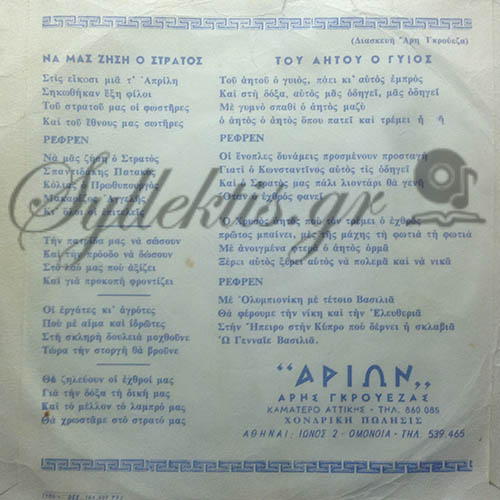 (Διασκευή Ἄρη Γκρούεζα)
ΝΑ ΜΑΣ ΖΗΣΗ Ο ΣΤΡΑΤΟΣ
Στίς εἴκοσι μιᾶ τ' Ἀπρίλη
Σηκωθήκαν ἕξη φίλοι
Τοῦ στρατοῦ μας οἱ φωστῆρες
Καί τοῦ ἔθνους μας σωτῆρες
ΡΕΦΡΕΝ
Νά μᾶς ζήση ὁ Στρατός
Σπαντιδάκης Πατακός
Κόλιας ὁ Πρωθυπουργός
Μακαρ Ἀγγελῆς
Κι' ὅλοι οἱ ἐπιτελεῖς
Τήν πατρίδα μας νά σώσουν
Καί τήν πρόοδο νά δώσουν
Στό λαό μας πού ἀξίζει
Καί γιά προκοπή φροντίζει
Οἱ ἐργάτες κι' ἀγρότες
Πού μέ αἷμα καί ἱδρῶτες
Στή σκληρή δουλειά μοχθοῦνε
Τώρα τήν στοργή θά βροῦνε
Θά ζηλεύουν οἱ ἐχθροί μας
Γιά τήν δόξα τή δική μας
Καί τό μέλλον τό λαμπρό μας
Θά χρωστᾶμε στό στρατό μας
ΤΟΥ ΑΗΤΟΥ Ο ΓΥΙΟΣ
Τοῦ ἀητοῦ ὁ γυιός, πάει κι' αὐτός ἐμπρός
Καί στή δόξα, αὐτός μᾶς ὁδηγεῖ, μᾶς ὁδηγεῖ
Μέ γυμνό σπαθί ὁ ἀητός μαζύ
ὁ ἀητός ὁ ἀητός ὅπου πατεῖ καί τρέμει ἡ γῆ
ΡΕΦΡΕΝ
Οἱ ἔνοπλες δυνάμεις προσμένουν προσταγή
Γιατί ὁ Κωνσταντῖνος αὐτός τίς ὁδηγεῖ
Καί ὁ Στρατός μας πάλι λιοντάρι θά γενῆ
Ὅταν ὁ ἐχθρός φανεῖ
Ὁ Χρυσός ἀητός πού τόν τρέμει ὁ ἐχθρός
πρῶτος μπαίνει, μές τῆς μάχης τή φωτιά τή φωτιά
Μέ ἀνοιγμένα φτερά ὁ ἀητός ὁρμᾶ
Ξέρει αὐτός ξέρει αὐτός νά πολεμᾶ καί νά νικᾶ
ΡΕΦΡΕΝ
Μέ Ὀλυμπιονίκη μέ τέτοιο Βασιλιᾶ
Θά φέρουμε τήν νίκη καί τήν Ἐλευθεριά
Στήν Ἤπειρο στήν Κύπρο πού δέρνει ἡ σκλαβιά
Ὦ Γενναῖε Βασιλιᾶ.
"ΑΡΙΩΝ"
ΑΡΗΣ ΓΚΡΟΥΕΖΑΣ
ΚΑΜΑΤΕΡΟ ΑΤΤΙΚΗΣ - ΤΗΛ. 860 085
ΧΟΝΔΡΙΚΗ ΠΩΛΗΣΙΣ
ΑΘΗΝΑΙ: ΙΩΝΟΣ 2 - ΟΜΟΝΟΙΑ - ΤΗΛ. 539.465